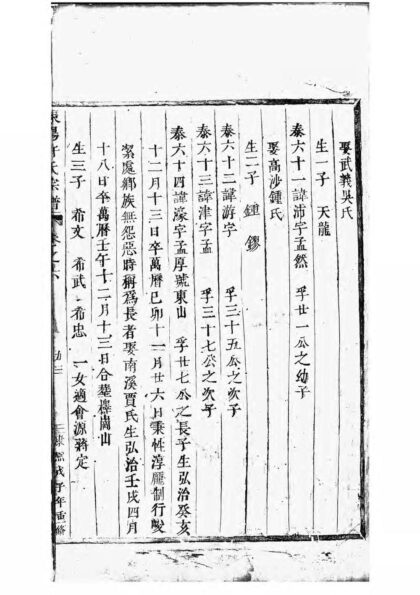 娶武義吳氏
生一子 天龍
泰六十一諱沛字孟然 孚廿一公之幼子
娶高沙鍾氏
生二子 鍾 鏐
泰六十二諱游字 孚三十五公之次子
泰六十三諱津字孟 孚三十七公之次子
泰六十四諱濠字孟厚號東山 孚廿七公之長子生弘治癸亥
十二月十三日卒萬曆己卯十一月廿六日秉性淳龐制行峻
絜處鄉族無怨惡時稱爲長者娶南溪賈氏生弘治壬戌四月
十八日卒萬曆壬午十二月十三日合塟
生三子 希文 希武 希忠 一女適會源蔣定
東陽許氏宗譜 卷之
康熙戊子年重修